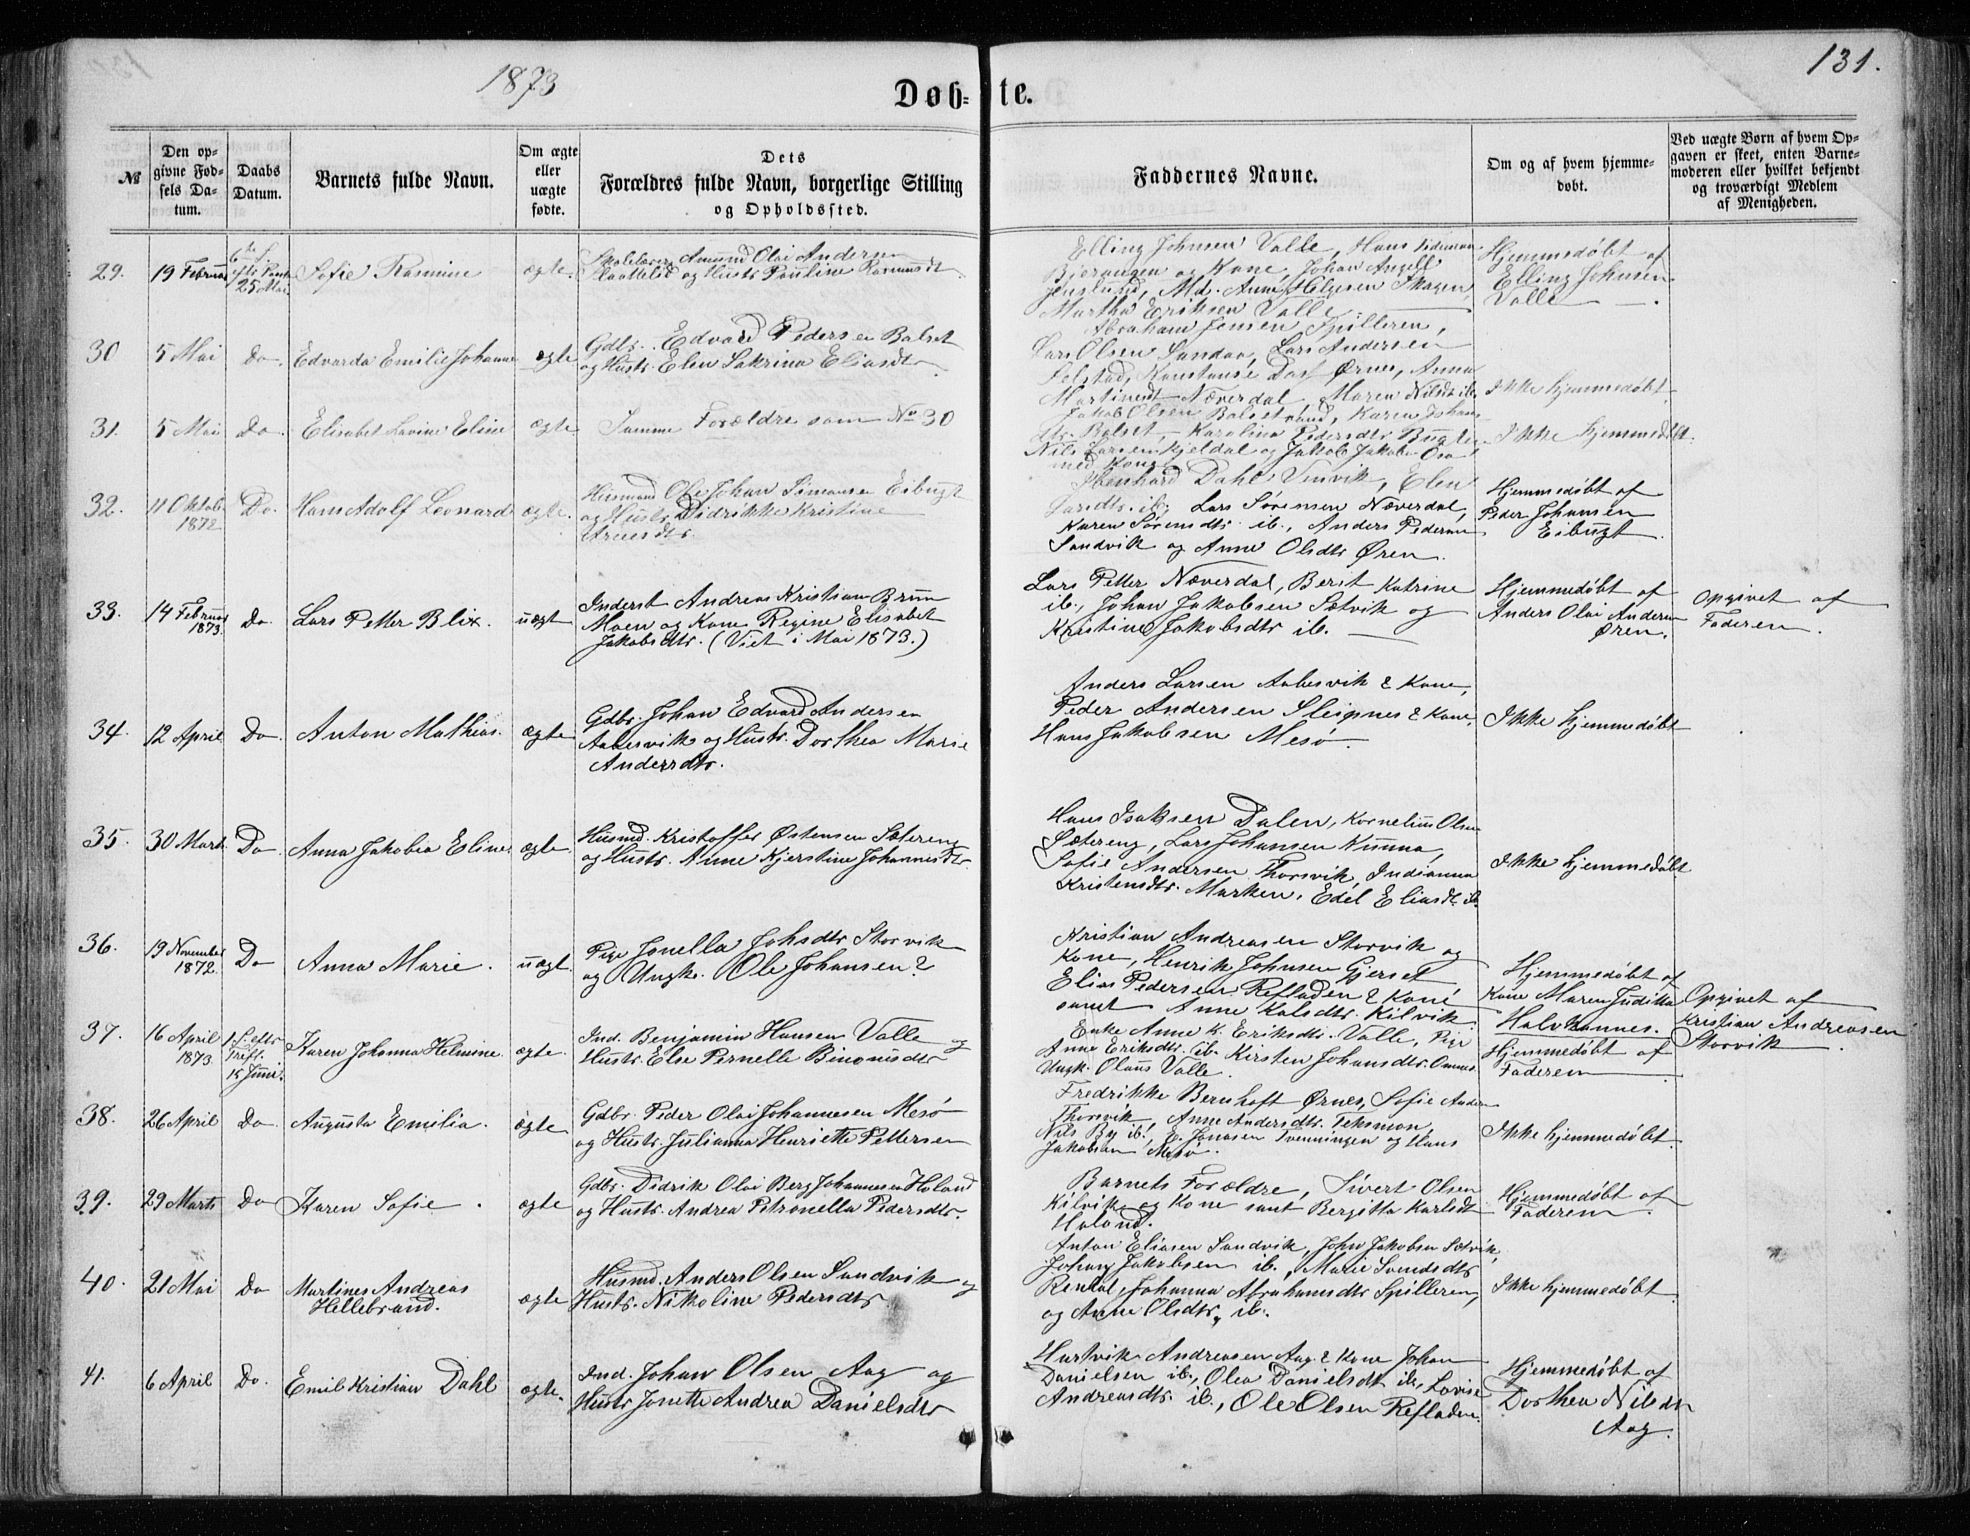 1873
Døb=te.
131.
№
Den op-
givne Fød-
sels Da-
tum.
Daabs
Datum.
Barnets fulde Navn.
Om ægte
eller
uægte
fødte.
Dets
Forældres fulde Navn, borgerlige Stilling
og Opholdssted.
Faddernes Navne.
Om og af hvem hjemme-
døbt.
Ved uægte Børn af hvem Op-
gaven er skeet, enten Barne-
moderen eller hvilket bekjendt
og troværdigt Medlem
af Menigheden.
29. 19 Februar
25 Mai
Sofie Rasmine
ægte.
Skolelærer Amund Olai Andersen
og Hustr. Pauline Rasmusdt.
Elling Johnsen Valle, Hans Pedersen
og Kone, Johan Angell
Md. Anne Helgesen Skagen,
Martha Eriksen Valle
Hjemmedøbt af
Elling Johnsen
Valle
30 5 Mai Do. Edvarda Emilie Johanna ægte
Gdbr. Edvard Pedersen Balset
og Hustr. Elen Sakrina Eliasdtr.
Abraham Jensen Spilleren,
Lars Olsen Sandaa, Lars Andersen
Selstad, Konstanse Dass Ørnes, Anna
Martinusdt. Næverdal, Maren Nilsdt. ib.
Ikke hjemmedøbt
31. 5 Mai Do. Elisabet Lovine Eline ægte
Samme Forældre som No 30
Jakob Olsen Balset, Karen Johans
dtr. Balset, Karolina Pedersdtr.
Nils Larsen Kjeldal og Jakob Jakobsen
med Kone
Ikke hjemmedøbt.
32. 11 Oktob.
1872.
Do. Hans Adolf Leonard ægte.
Husmand Ole Johan Simonsen Eibugt
og Hustr. Didrikke Kristine
Arnesdtr.
Dahl Vinvik, Elen
Larsdtr. ib., Lars Sørensen Næverdal,
Karen Sørensdtr. ib., Anders Pedersen
Sandvik og Anne Olsdtr. Øren.
Hjemmedøbt af
Peder Johansen
Eibugt.
33. 14 Februar
1873.
Do Lars Petter Blix. uægt
Inderst Andreas Kristian Brun
Moen og Kone Regine Elisabet
Jakobsdtr. (Viet i Mai 1873.)
Lars Petter Næverdal, Berit Katrine
ib., Johan Jakobsen Sætvik og
Kristine Jakobsdtr. ib.
Hjemmedøbt af
Anders Olai Andersen
Øren.
Opgivet af
Faderen.
34. 12 April Do. Anton Mathias. ægte
Gdbr. Johan Edvard Andersen
Aabesvik og Hustr. Dorthea Marie
Andersdtr.
Anders Larsen Aabesvik & Kone,
Peder Andersen Sleipnes & Kone,
Hans Jakobsen Mesø.
Ikke hjemmedøbt
35. 30 Marts Do Anna Jakobea Eline. ægte
Husmd. Kristoffer Østensen Sætereng
og Hustr. Anne Kjerstine Johannisdtr.
Hans Isaksen Dalen, Kornelius Olsen
Sætereng, Lars Johansen Kunna,
Sofie Andersen Thorsvik, Indianna
Kristensdtr. Marken, Edel Eliasdt. ib.
Ikke hjemmedøbt
36. 19 November
1872.
Do Anna Marie. uægt.
Pige Jonella Johsdtr. Storvik
og Ungk. Ole Johansen?
Kristian Andreasen Storvik og
Kone, Henrik Johnsen Gjerset
Elias Pedersen Refladen & Kone
samt Anne Kalsdtr. Kilvik.
Hjemmedøbt af
Kone Maren Judikka
Halvhannes.
Opgivet af
Kristian Andreasen
Storvik.
37. 16 April
1873.
1 S. eftr.
Tref.
15 Juni.
Karen Johanna Helmine. ægte.
Ind. Benjamin Hansen Valle og
Hustr. Else Pernelle Binonisdtr.
Enke Anne K. Eriksdtr. Valle, Pige
Anne Eriksdtr. ib. Kirsten Johansdtr.
Ungk. Olaus Valle.
Hjemmedøbt af
Faderen
38. 26 April Do. Augusta Emilia. ægte
Gdbr. Peder Olai Johannesen Mesø
og Hustr. Julianna Henriette Pettersen
Fredrikke Bernhoft Ørnes, Sofie Andersen
Thorsvik, Anne Andersdtr. Teksmon,
Nils By ib., E. Jonasen Tvenningen og Hans
Jakobsen Mesø.
Ikke hjemmedøbt.
39. 29 Marts Do Karen Sofie. ægte
Gdbr. Didrik Olai Berg Johannesen Høland
og Hustr. Andrea Petronella Pedersdtr.
Barnets Forældre, Sivert Olsen
Kilvik og Kone samt Bergitta Karlsdt.
Høland.
Hjemmedøbt af
Faderen.
40. 21 Mai Do Martines Andreas
Hillebrand.
ægte
Husmd. Anders Olsen Sandvik og
Hustr. Nikoline Pedersdtr
Anton Eliasen Sandvik, John Jakobsen Sætvik,
Johan Jakobsen ib., Marie Svendsdtr.
Rendal, Johanna Abrahamsdtr. Spilleren,
og Anne Olsdtr. ib.
Ikke hjemmedøbt.
41. 6 April Do. Emil Kristian Dahl ægte.
Ind. Johan Olsen Aag og
Hustr. Jonette Andrea Danielsdtr
Hartvik Andreasen Aag & Kone Johan
Danielsen ib., Olea Danielsdt. ib., Lovise
Andreasdtr. ib., Ole Olsen Refladen.
Hjemmedøbt af
Dorthea Nilsdtr
Aag.